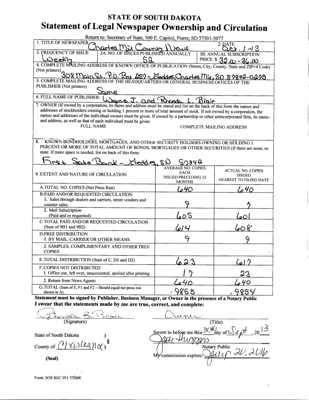 STATE OF SOUTH DAKOTA
Statement of Legal Newspaper Ownership and Circulation
Return to: Secretary of State, 500 E. Capitol, Pierre, SD 57501-5077
1. TITLE OF NEWSPAPER Charles Mix County News
2. DATE Oct. 1-13
3. FREQUENCY OF ISSUE Weekly
3A. NO. OF ISSUES PUBLISHED ANNUALLY 52
3B. ANNUAL SUBSCRIPTION PRICE $ 32.00-36.00
4. COMPLETE MAILING ADDRESS OF KNOWN OFFICE OF PUBLICATION (Street, City, County, State and ZIP+4 Code)
(Not printers)
308 Main St. P.O. Box
5. COMPLETE MAILING ADDRESS OF THE HEADQUARTERS OR GENERAL BUSINESS OFFICES OF THE
PUBLISHER (Not printer)
Same
6. FULL NAME OF PUBLISHER:
Wayne J. and Rhonda L. Blair
7. OWNER (If owned by a corporation, its name and address must be stated and list on the back of this form the names and
addresses of stockholders owning or holding 1 percent or more of total amount of stock. If not owned by a corporation, the
names and addresses of the individual owners must be given. If owned by a partnership or other unincorporated firm, its name
and address, as well as that of each individual must be given.
FULL NAME COMPLETE MAILING ADDRESS
8. KNOWN BONDHOLDERS, MORTGAGES, AND OTHER SECURITY HOLDERS OWNING OR HOLDING 1
PERCENT OR MORE OF TOTAL AMOUNT OF BONDS, MORTGAGES OR OTHER SECURITIES (If there are none, so
state. If more space is needed, list on back of this form.
First State Bank - Geddes, SD 57342
9. EXTENT AND NATURE OF CIRCULATION
AVERAGE NO. COPIES
EACH
ISSUED PRECEDING 12
MONTHS
ACTUAL NO. COPIES
ISSUED
NEAREST TO FILING DATE
A. TOTAL NO. COPIES (Net Press Run) 640 640
B. PAID AND/OR REQUESTED CIRCULATION
1. Sales through dealers and carriers, street vendors and
counter sales 9 7
2. Mail Subscription
(Paid and/or requested) 605 601
C. TOTAL PAID AND/OR REQUESTED CIRCULATION
(Sum of 9B1 and 9B2) 614 608
D. FREE DISTRIBUTION
1. BY MAIL, CARRIER OR OTHER MEANS 9 9
2. SAMPLES, COMPLIMENTARY AND OTHER FREE
COPIES
E. TOTAL DISTRIBUTION (Sum of C, D1 and D2) 623 617
F. COPIES NOT DISTRIBUTED
1. Office use, left over, unaccounted, spoiled after printing 17 23
2. Return from News Agents 640 640
G. TOTAL (Sum of E, F1 and F2 - Should equal net press run
shown in A) .9855 .9854
Statement must be signed by Publisher, Business Manager, or Owner in the presence of a Notary Public
I swear that the statements made by me are true, correct, and complete:
Owner
(Signature) (Title)
State of South Dakota )
Sworn to before me this 30th day of Sept, 2013
County of Charles Mix )
Notary Public
(Seal)
My commission expires: July 20, 2016
Form: SOS REC 051 7/2004